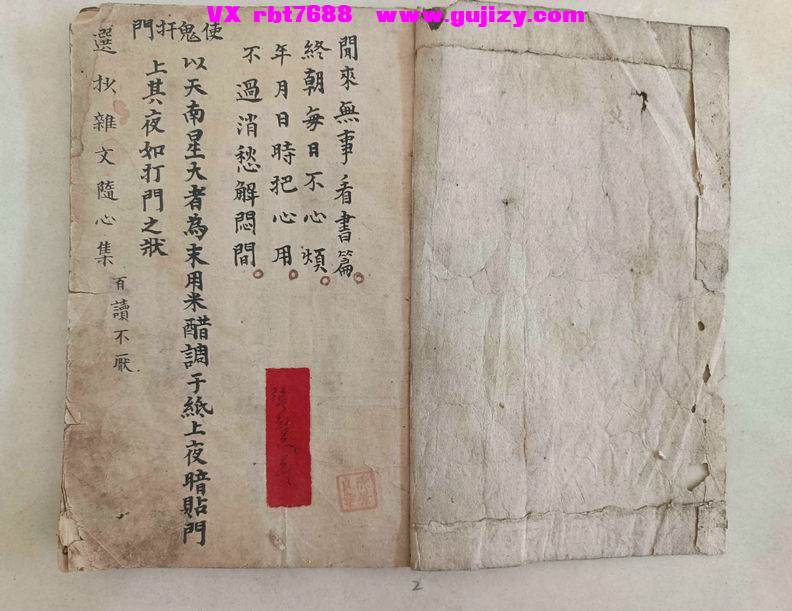 VX rbt7688 www.gujizy.com
閒來無事看書篇
終朝每日不心煩
年月日時把心用
不過消愁解悶間
使鬼打門
以天南星大者為末用米醋調于紙上夜暗貼門
上其夜如打門之狀
選抄雜文隨心集
百讀不厭
2